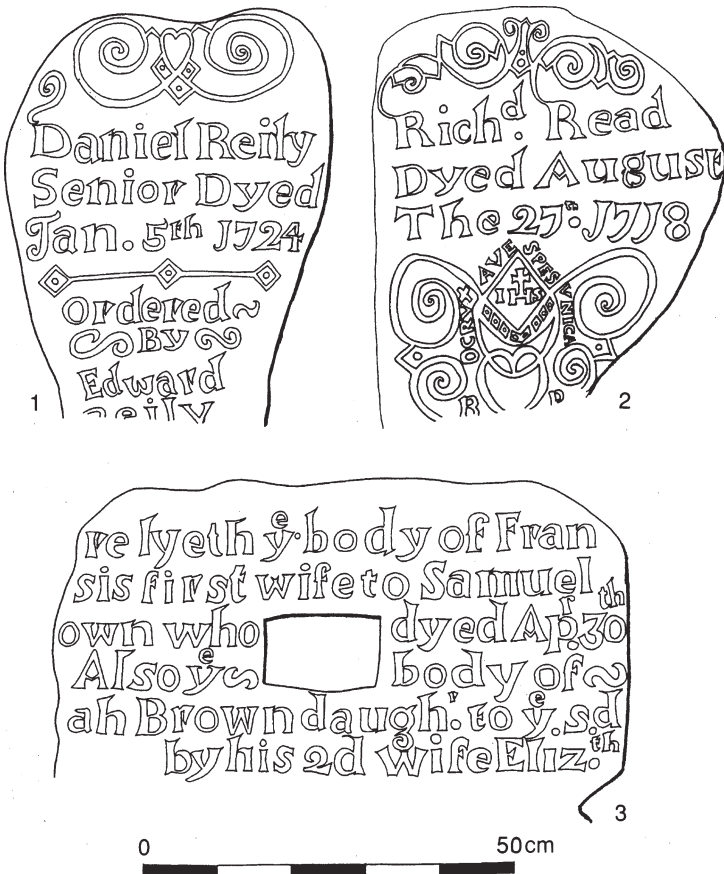 Daniel Reily
Senior Dyed
Jan. 5th 1724
Ordered~
By
Edward
Reily
1
Richd. Read
Dyed August
The 27th: 1718
OCRVX AVE SPES VNICA
IHS
R
2
re lyeth ye. body of Fran
sis first wife to Samuel
own who dyed Apr. 30th
Also ye body of~
ah Brown daughr. to ye. sd
by his 2d wife Eliz:th
3
0 50cm